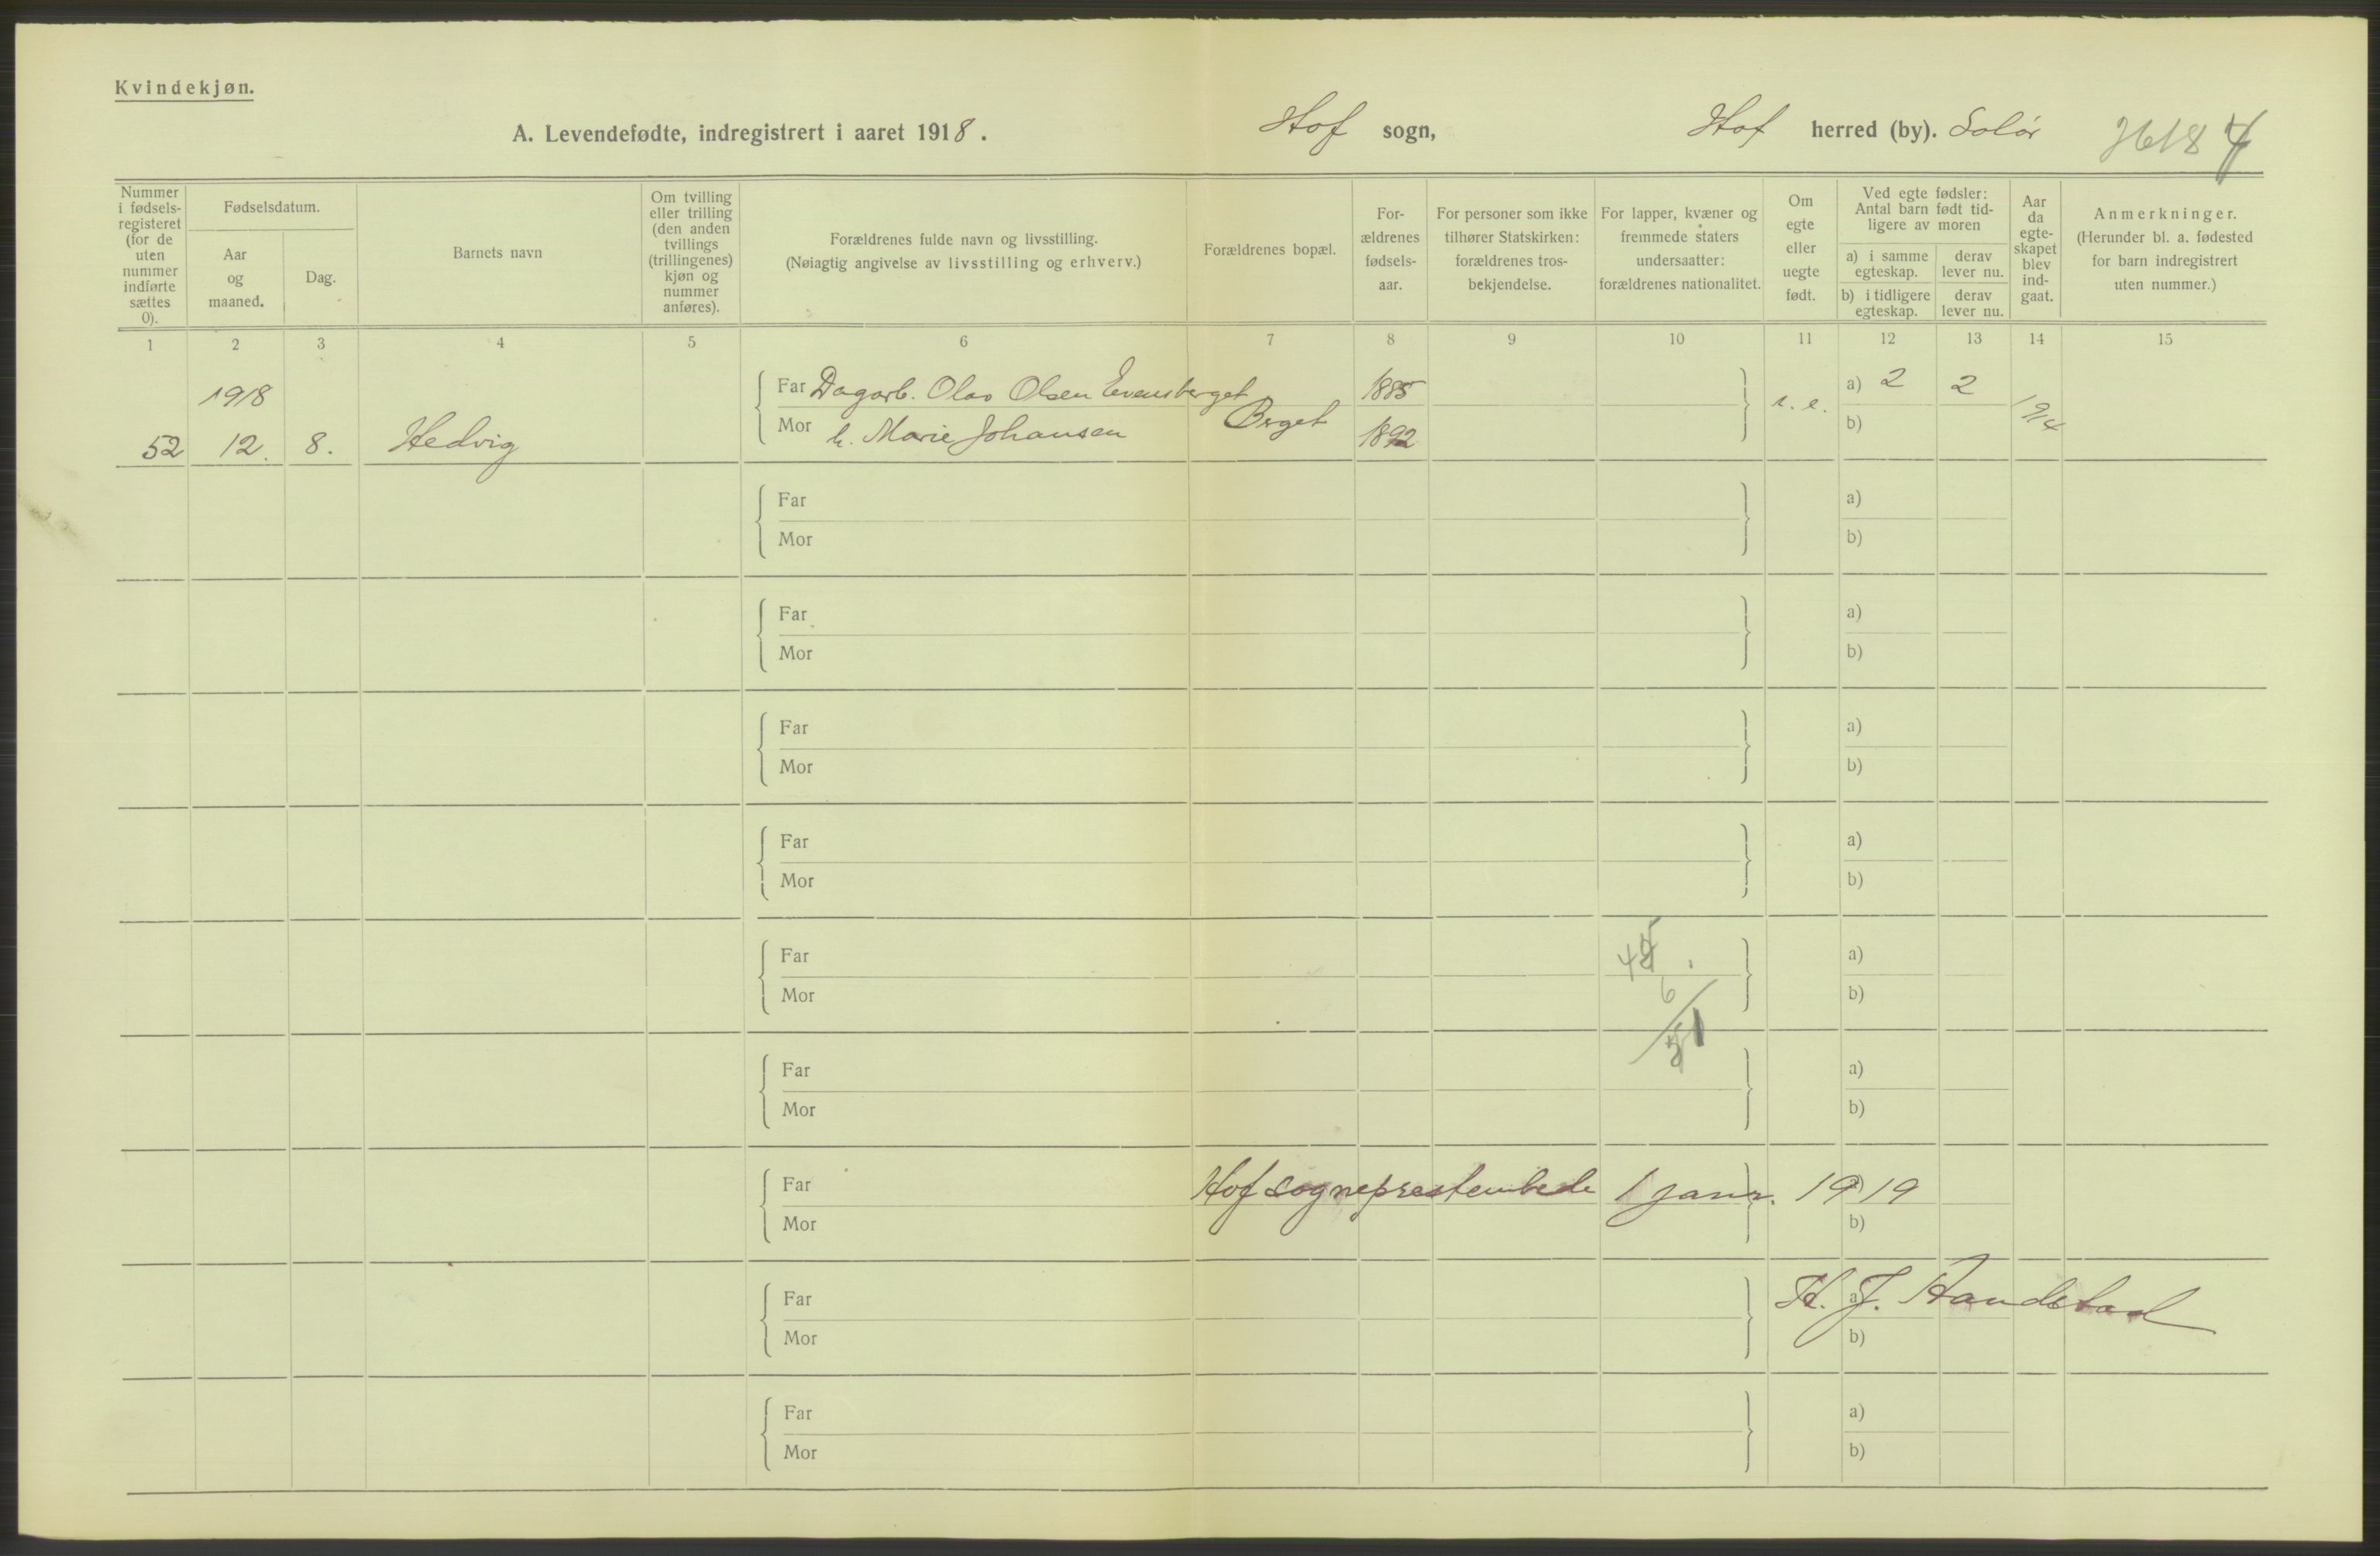 Kvindekjøn.
A. Levendefødte, indregistrert i aaret 1918. Hof sogn, Hof herred (by). Solør
Nummer i fødsels-registeret (for de uten nummer indførte sættes 0).
Fødselsdatum.
Aar og maaned.
Dag.
Barnets navn
Om tvilling eller trilling (den anden tvillings (trillingenes) kjøn og nummer anføres).
Forældrenes fulde navn og livsstilling.
(Nøiagtig angivelse av livsstilling og erhverv.)
Forældrenes bopæl.
For-ældrenes fødsels-aar.
For personer som ikke tilhører Statskirken: forældrenes tros-bekjendelse.
For lapper, kvæner og fremmede staters undersaatter: forældrenes nationalitet.
Om egte eller uegte født.
Ved egte fødsler: Antal barn født tid-ligere av moren
a) i samme egteskap.
derav lever nu.
b) i tidligere egteskap.
derav lever nu.
Aar da egte-skapet blev ind-gaat.
Anmerkninger.
(Herunder bl. a. fødested for barn indregistrert uten nummer.)
1 2 3 4 5 6 7 8 9 10 11 12 13 14 15
1918
Far Dagarb. Olav Olsen Evensberget 1885 a) 2 2
52 12. 8. Hedvig
Mor h. Marie Johansen Berget 1892 e. b) 1914
Far a)
Mor b)
Far a)
Mor b)
Far a)
Mor b)
Far a)
Mor b)
Far a)
Mor 6 b)
Far a)
Mor b)
Far Hof sogneprestembede 1 janr. 1919 a)
Mor b)
Far H. J. Handstad a)
Mor b)
Far a)
Mor b)